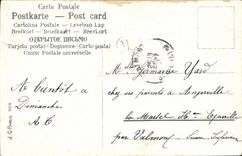 Carte Postale
Postkarte — Post card
Cartolina Postale - Levelező-Lap
Brefkort - Briefkaart - Brevkort
ОТКРЫТОЕ ПИСЬМО
Tarjeta postal - Dopisnice - Carta postal
Union Postale universelle
A bientôt
Dimanche
A. C.
Melle Germaine Yard
chez ses parents à Angerville
la Martel
par Valmont